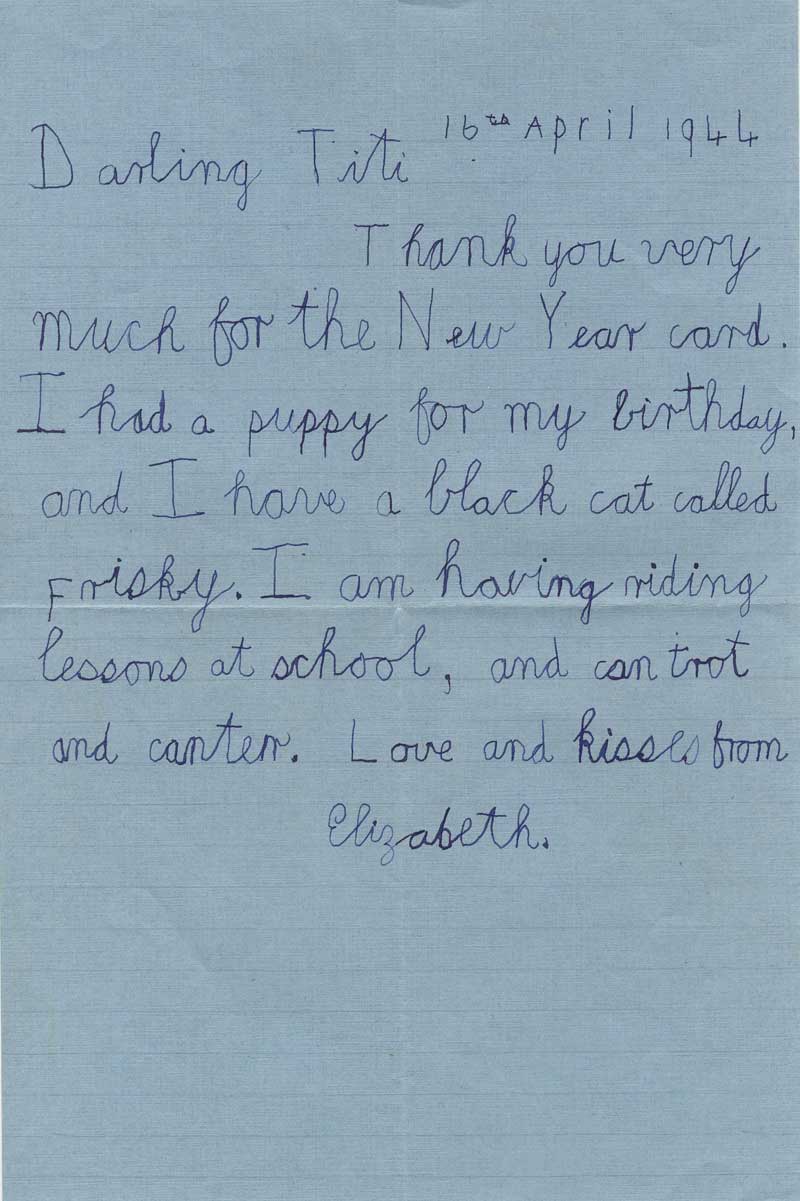 16th April 1944
Darling Titi
Thank you very
much for the New Year card.
I had a puppy for my birthday,
and I have a black cat called
Frisky. I am having riding
lessons at school, and can trot
and canter. Love and kisses from
Elizabeth.